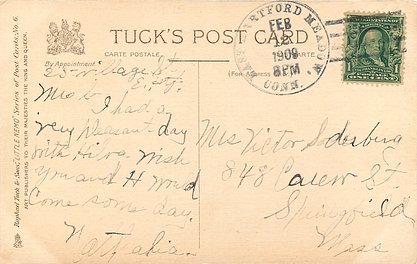 TUCK'S POST CARD
CARTE POSTALE
By Appointment.
(For Address
HARTFORD MEADOW
FEB
12
1909
8PM
CONN.
Raphael Tuck & Sons' "LITTLE NEMO" Series of Post Cards No. 6.
ART PUBLISHERS TO THEIR MAJESTIES THE KING AND QUEEN.
25 Village St
Mrs I had a
very pleasant day
with Hilva wish
you and H would
Come some day
Mrs Victor Soderburg
848 Carew St.
Springfield
Mass